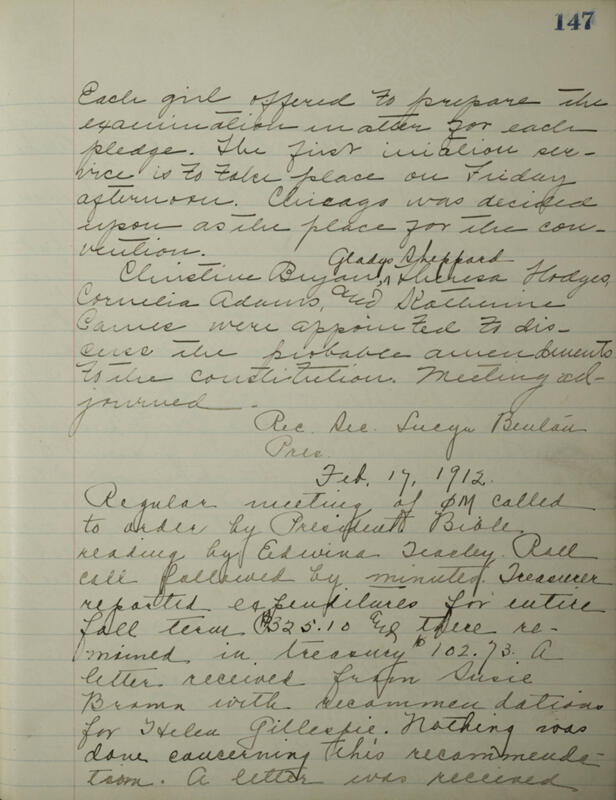 147
Each girl offered to prepare the
examination matter for each
pledge. The first iniation ser-
vice is to take place on Friday
afternoon. Chicago was decided
upon as the place for the con-
vention.
Gladys Sheppard
Christine Bryan, Theresa Hodges,
Cornelia Adams, and Katherine
Carnes were appointed to dis-
cuss the probable amendments
to the constitution. Meeting ad-
journed.
Rec. Sec.
Pres.
Feb. 17, 1912.
Regular meeting of ΦM called
to order by President. Bible
reading by Edwina Teasley. Roll
call followed by minutes. Treasurer
reported expenditures for entire
fall term $325.10 and there re-
mained in treasury $102.73. A
letter received from Susie
Brown with recommendations
for Helen Gillespie. Nothing was
done concerning this recommenda-
tion. A letter was received